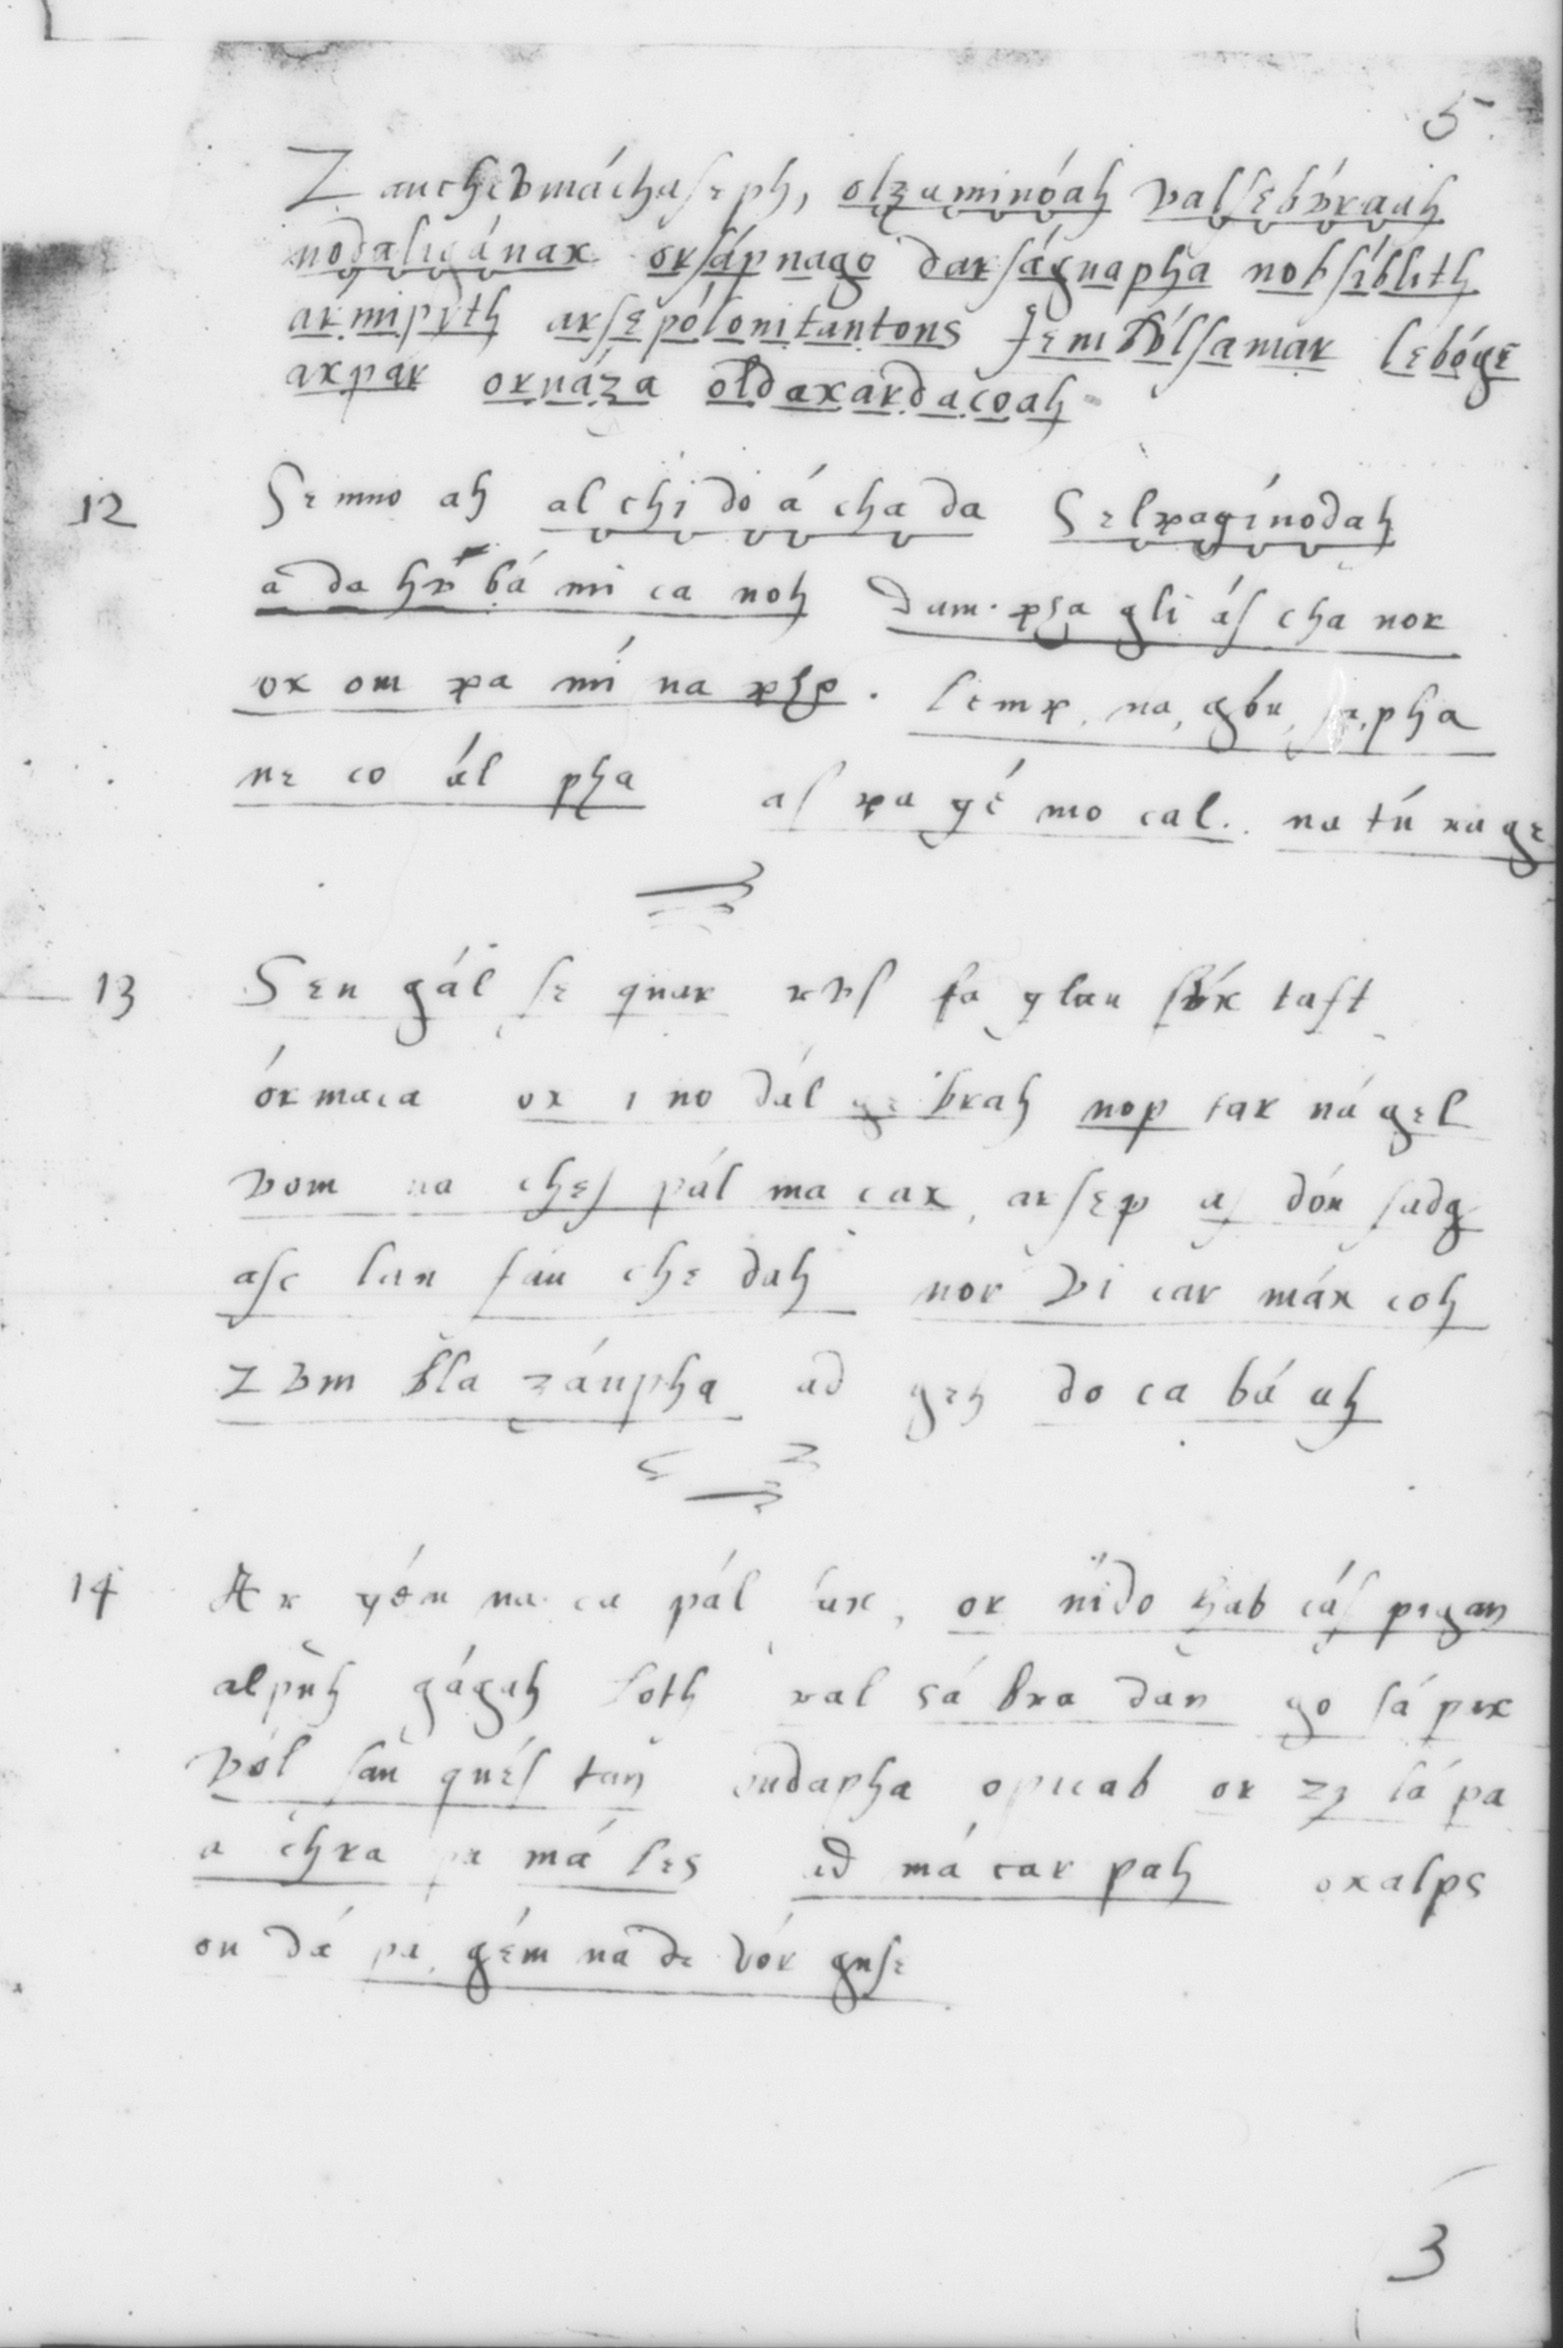 5
Zanchevmáchaseph, olzaminóah valsebúraah
nodaligánax orsápnago darságnapha nobsíblith
armipyth arsepólonitantons Iembúlsamar lebóge
axpar ornáza oldaxardacoah
12
Semno ah al chi do á cha da Selpagínodah
a da hu bá mi ca noh dum pha gli ás cha nor
ox om pa mí na php. lemp, na, gón, pha
ne co ál pha as pa gé mo cal. na tú rage
13
Sen gál se quar rus fa glan súx tast
órmaca ox i no dál ge brah nop tar ná gel
vom na ches pál ma cax, arsep as dón sadg
asc lan fan che dah nor vi car máx coh
zvm bla zánpha ad geh do ca bá ah
14
Ar gém na ca pál fax, or nido hab cás pigan
alpuh gágah loth ral sá bra dan go sá pax
vól san qués tan ondapha opicab or zy lá pa
a chra pa má les ad má car pah oxalps
on dá pa, gém na de vór guse
3